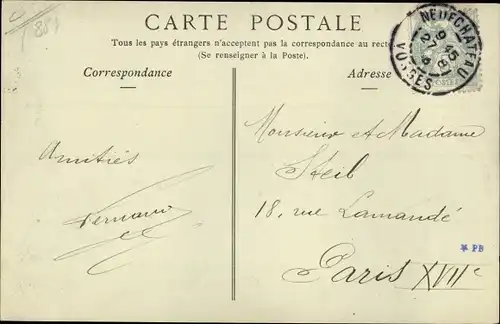 CARTE POSTALE
Tous les pays étrangers n'acceptent pas la correspondance au recto
(Se renseigner à la Poste).
Correspondance
Adresse
NEUFCHATEAU
VOSGES
Amitiés
Fernand
Monsieur et Madame
Steib
18, rue Lamandé
Paris XVIIe
* PB